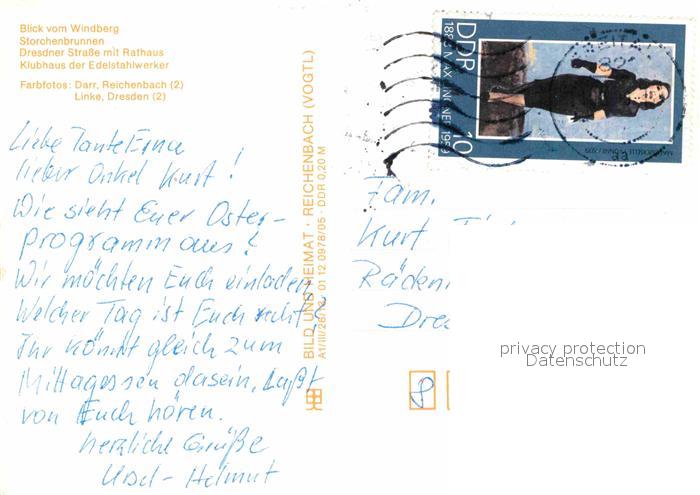 Blick vom Windberg
Storchenbrunnen
Dresdner Straße mit Rathaus
Klubhaus der Edelstahlwerker
Farbfotos: Darr, Reichenbach (2)
Linke, Dresden (2)
Liebe Tante Erna
lieber Onkel Kurt!
Wie sieht Euer Oster-
programm aus?
Wir möchten Euch einladen
Welcher Tag ist Euch recht?
Ihr könnt gleich zum
Mittagessen dasein. Laßt
von Euch hören.
herzliche Grüße
Ursel - Helmut
BILD UND HEIMAT · REICHENBACH (VOGTL)
A1/III/26/13 01 12 0978/05 · DDR 0,20 M
DDR
10
Fam.
Kurt
privacy protection
Datenschutz